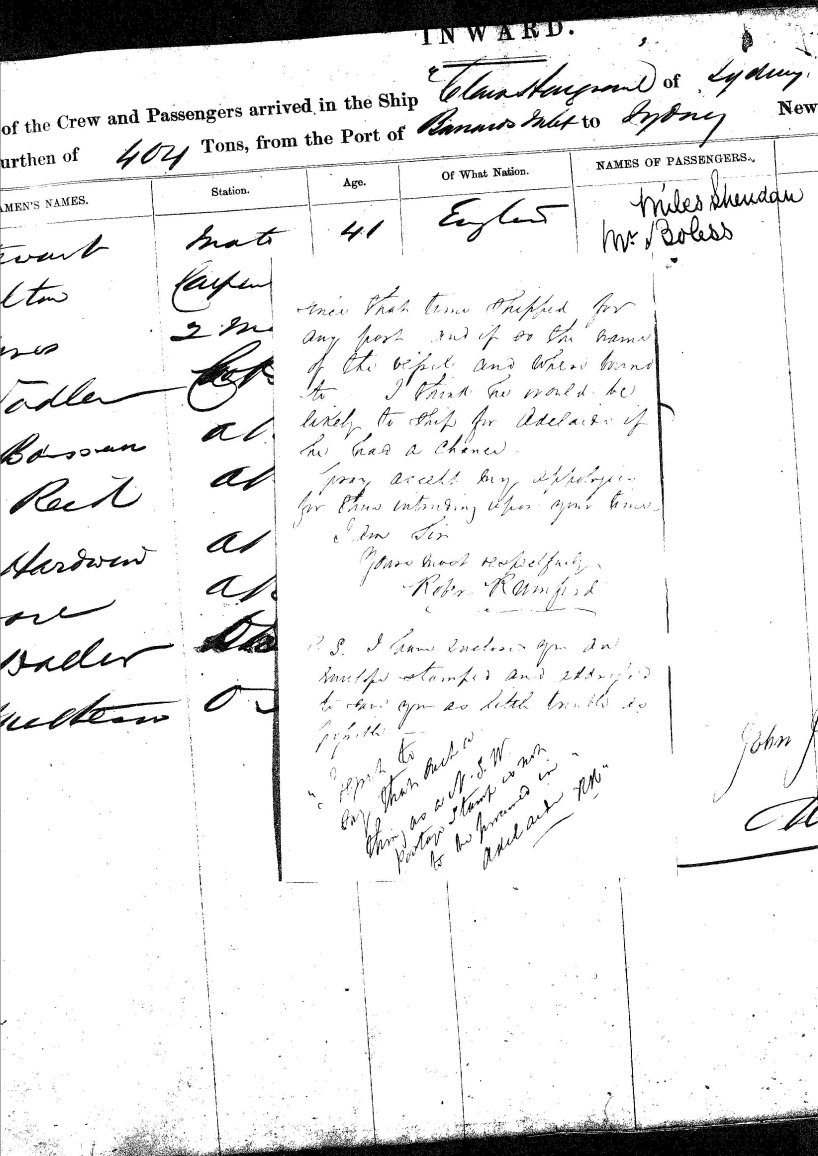 INWARD.
of the Crew and Passengers arrived in the Ship " of Sydney.
urthen of 404 Tons, from the Port of Inlet to Sydney New
AMEN'S NAMES. Station. Age. Of What Nation. NAMES OF PASSENGERS.
wart Mate 41 England Miles Sheridan
Mr. Boless
lton Carpen
2 Ma
Cook
ab
Reid ab
Hardwin ab
ore ab
since that time shipped for
any port and if so the name
of the vessel and where bound
to I think he would be
likely to ship for Adelaide if
he had a chance.
pray accept my appologies
for thus intruding upon your time
I am Sir
Yours most respectfully
Robt Rumford
P.S. I have enclosed you an
envelope stamped and addressed
to save you as little trouble as
possible
to
say that such a
thing as a N.S.W.
Postage Stamp is not
to be procured in
Adelaide RR"
John